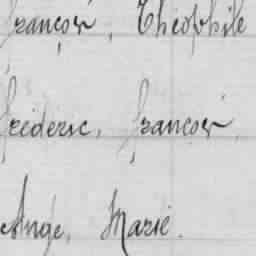 françois, Théophile
frédéric, françois,
Ange, Marie.